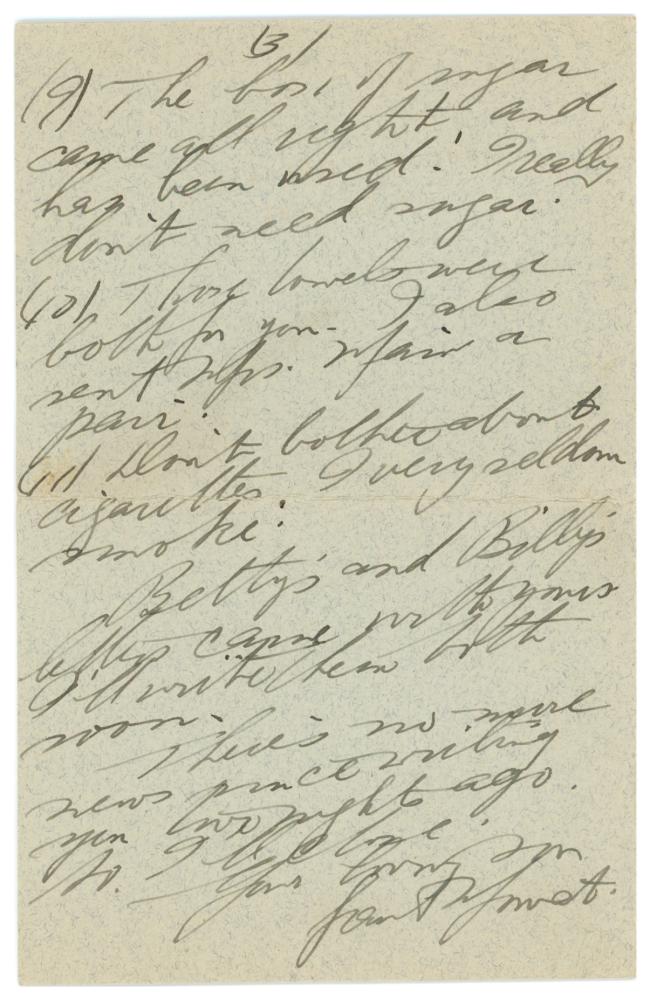 3/
(9) The box of sugar
came all right, and
has been used. I really
don't need sugar.
(10) Those towels were
both for you - I also
sent Mrs. a
pair.
(11) Don't bother about
cigarettes I very seldom
smoke.
Betty's and Billy's
letters came with yours
I'll write them both
soon.
There's no more
news since writing
you two nights ago.
So. I'll close.
Your loving son